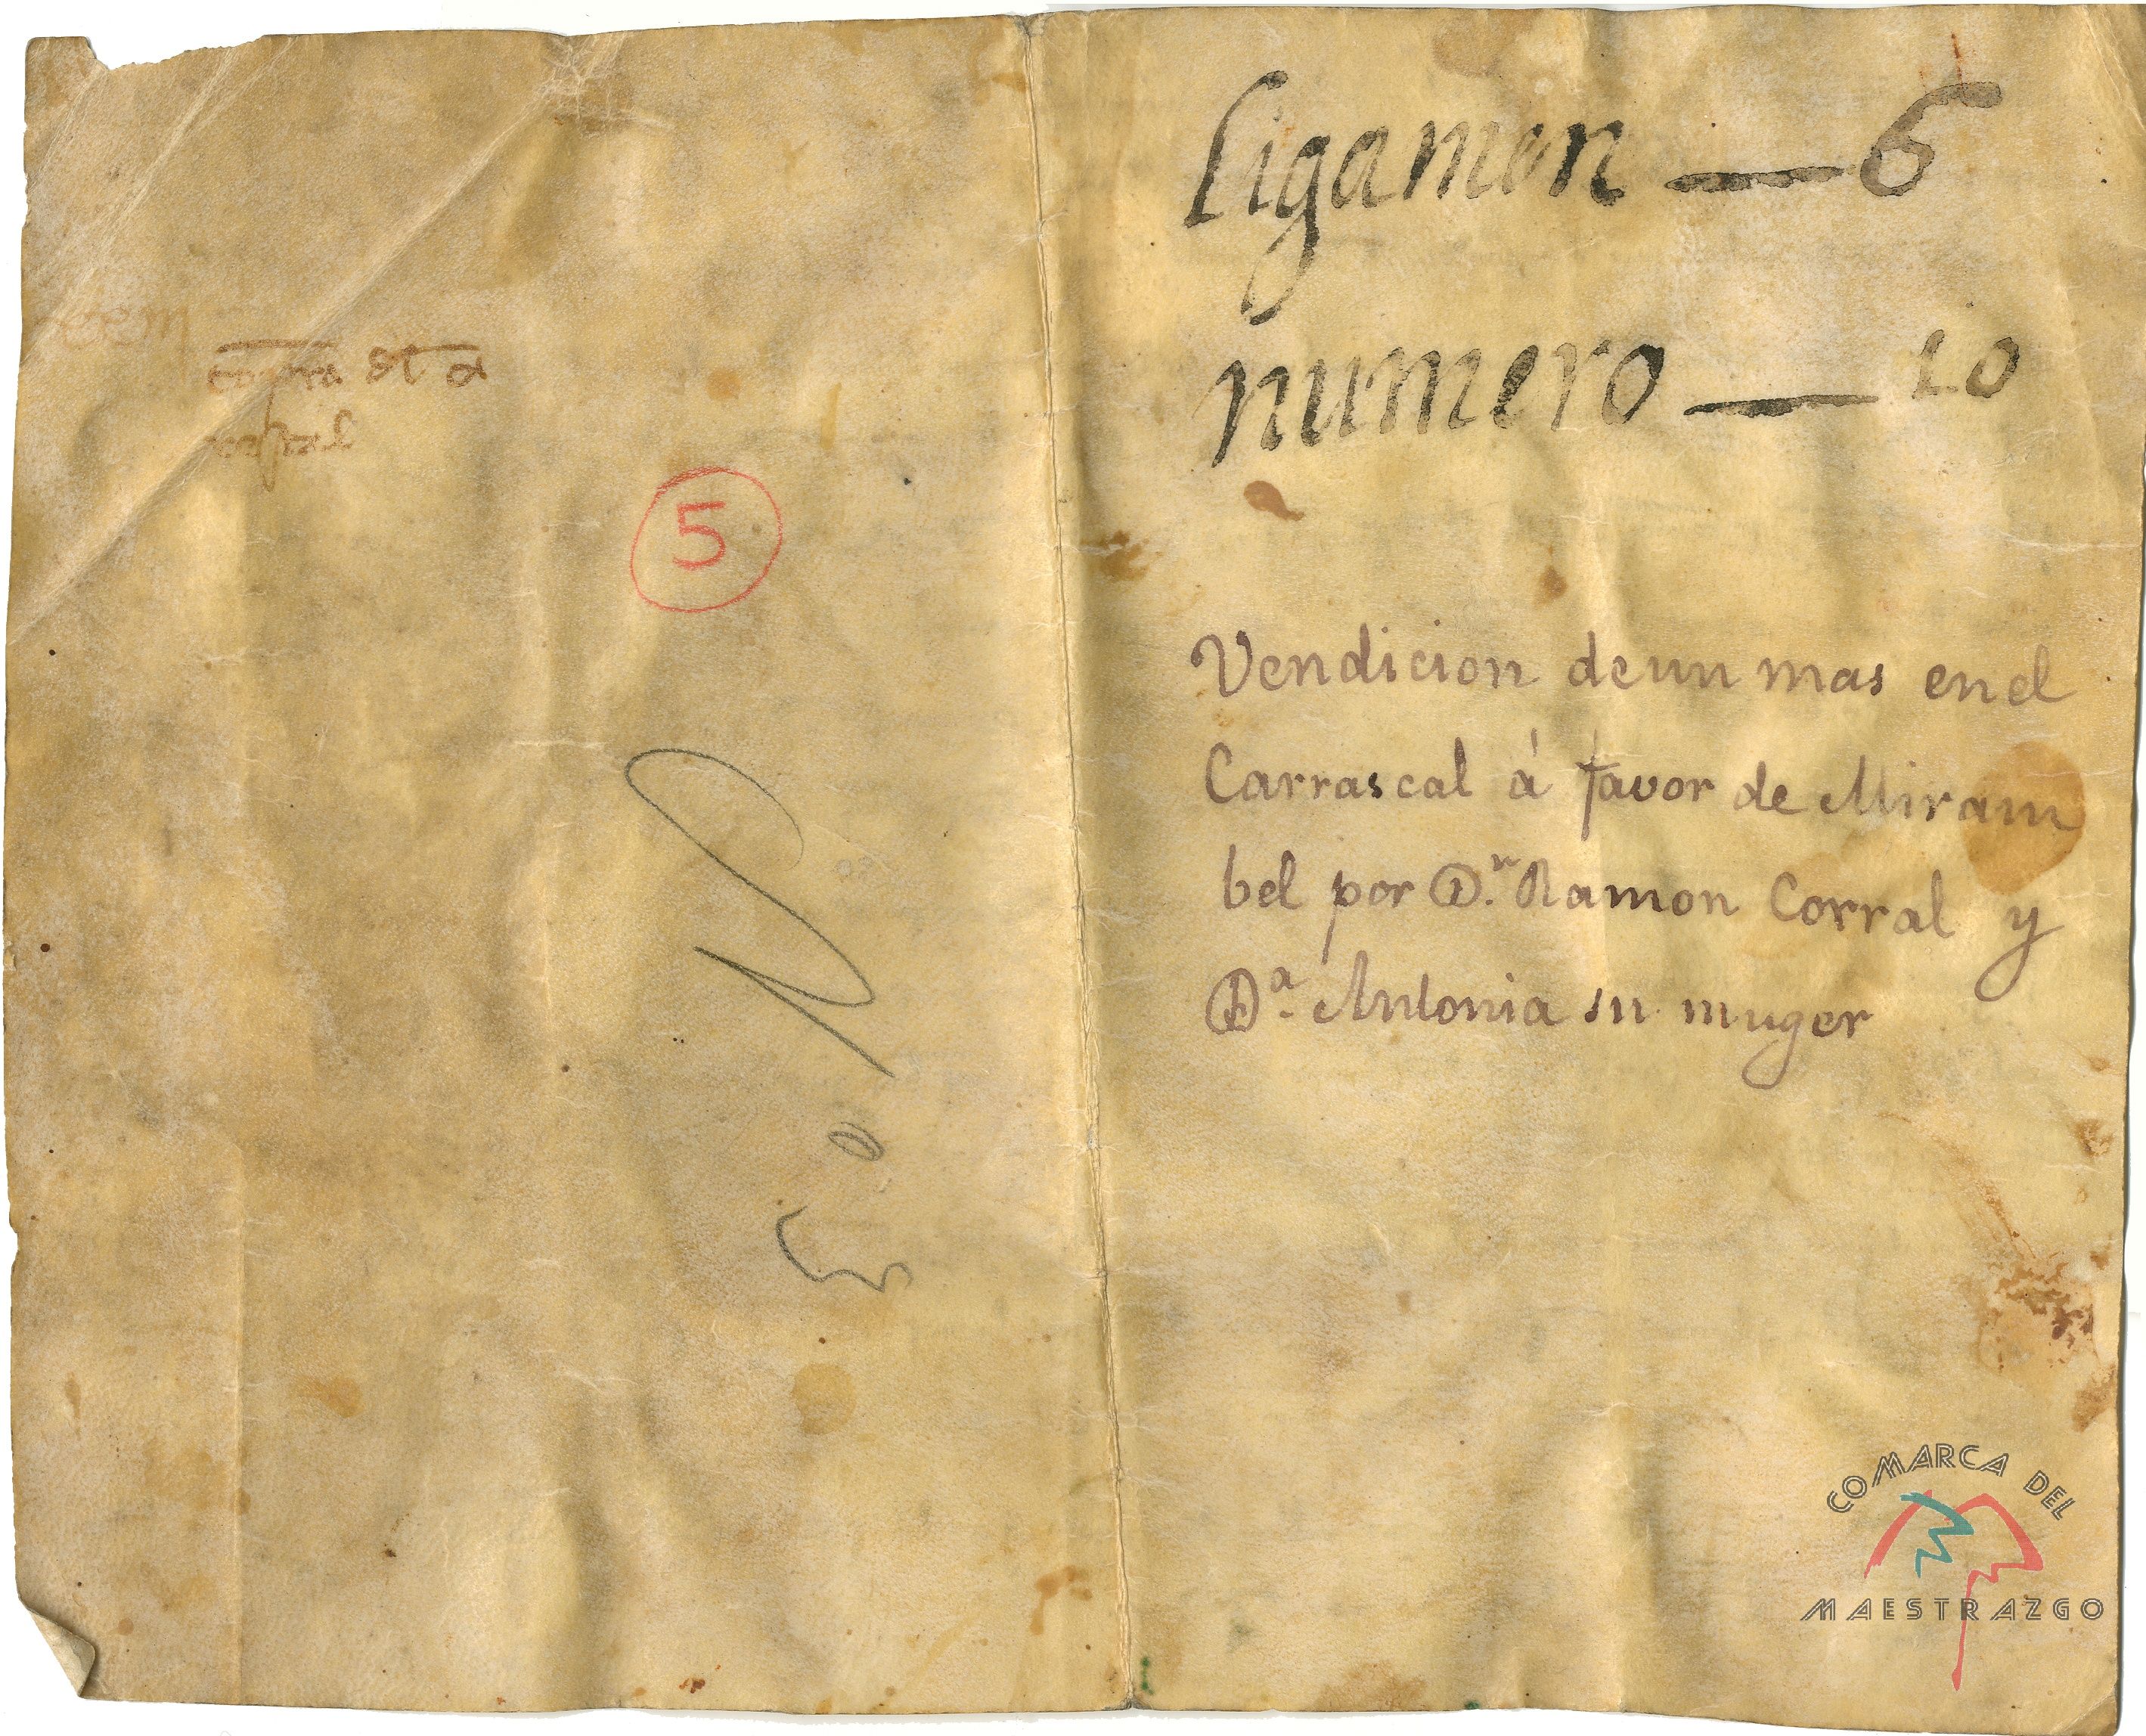 5
Ligamen — 6
numero — 10
Vendicion de un mas en el
Carrascal á favor de Miram
bel por D.n Ramon Corral y
D.a Antonia su muger
COMARCA DEL
MAESTRAZGO